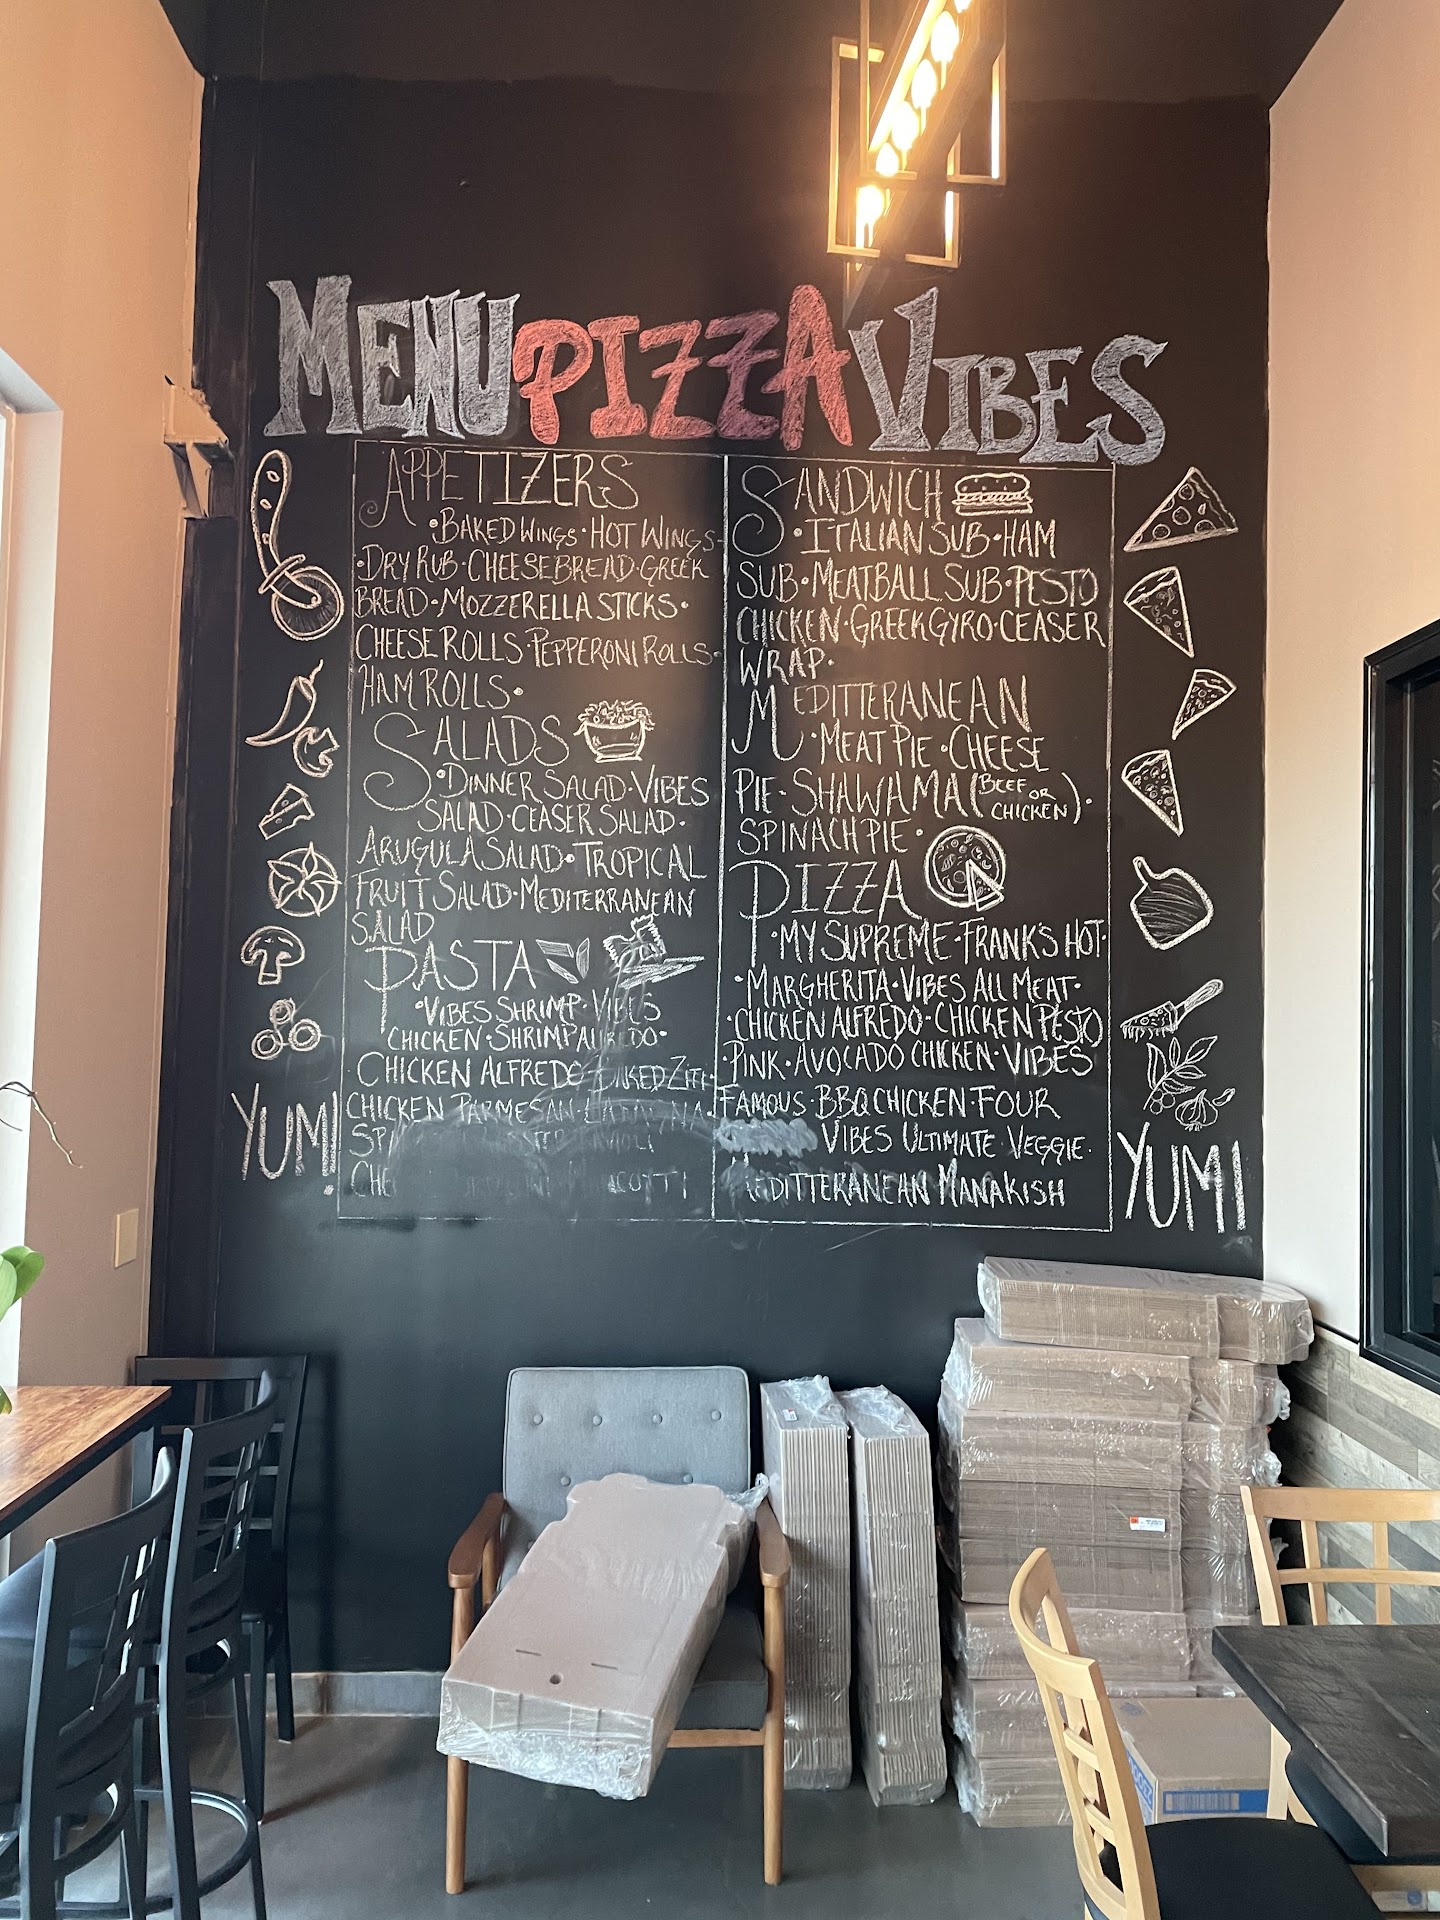 MENU PIZZA VIBES
APPETIZERS
•BAKED WINGS•HOT WINGS-
•DRY RUB•CHEESEBREAD•GREEK
BREAD•MOZZERELLA STICKS•
CHEESE ROLLS•PEPPERONI ROLLS•
HAM ROLLS•
SALADS
•DINNER SALAD•VIBES
SALAD•CEASER SALAD•
ARUGULA SALAD•TROPICAL
FRUIT SALAD•MEDITERRANEAN
SALAD
PASTA
•VIBES SHRIMP•VIBES
CHICKEN•SHRIMP ALFREDO•
CHICKEN ALFREDO BAKED ZITI
CHICKEN PARMESAN
SANDWICH
•ITALIAN SUB•HAM
SUB•MEATBALL SUB•PESTO
CHICKEN•GREEK GYRO•CEASER
WRAP•
MEDITTERANEAN
•MEAT PIE•CHEESE
PIE-SHAWAMA (BEEF OR CHICKEN)•
SPINACH PIE•
PIZZA
•MY SUPREME•FRANKS HOT•
•MARGHERITA•VIBES ALL MEAT•
•CHICKEN ALFREDO-CHICKEN PESTO
•PINK•AVOCADO CHICKEN•VIBES
FAMOUS•BBQ CHICKEN•FOUR
VIBES ULTIMATE•VEGGIE•
MEDITTERANEAN MANAKISH
YUM!
YUM!